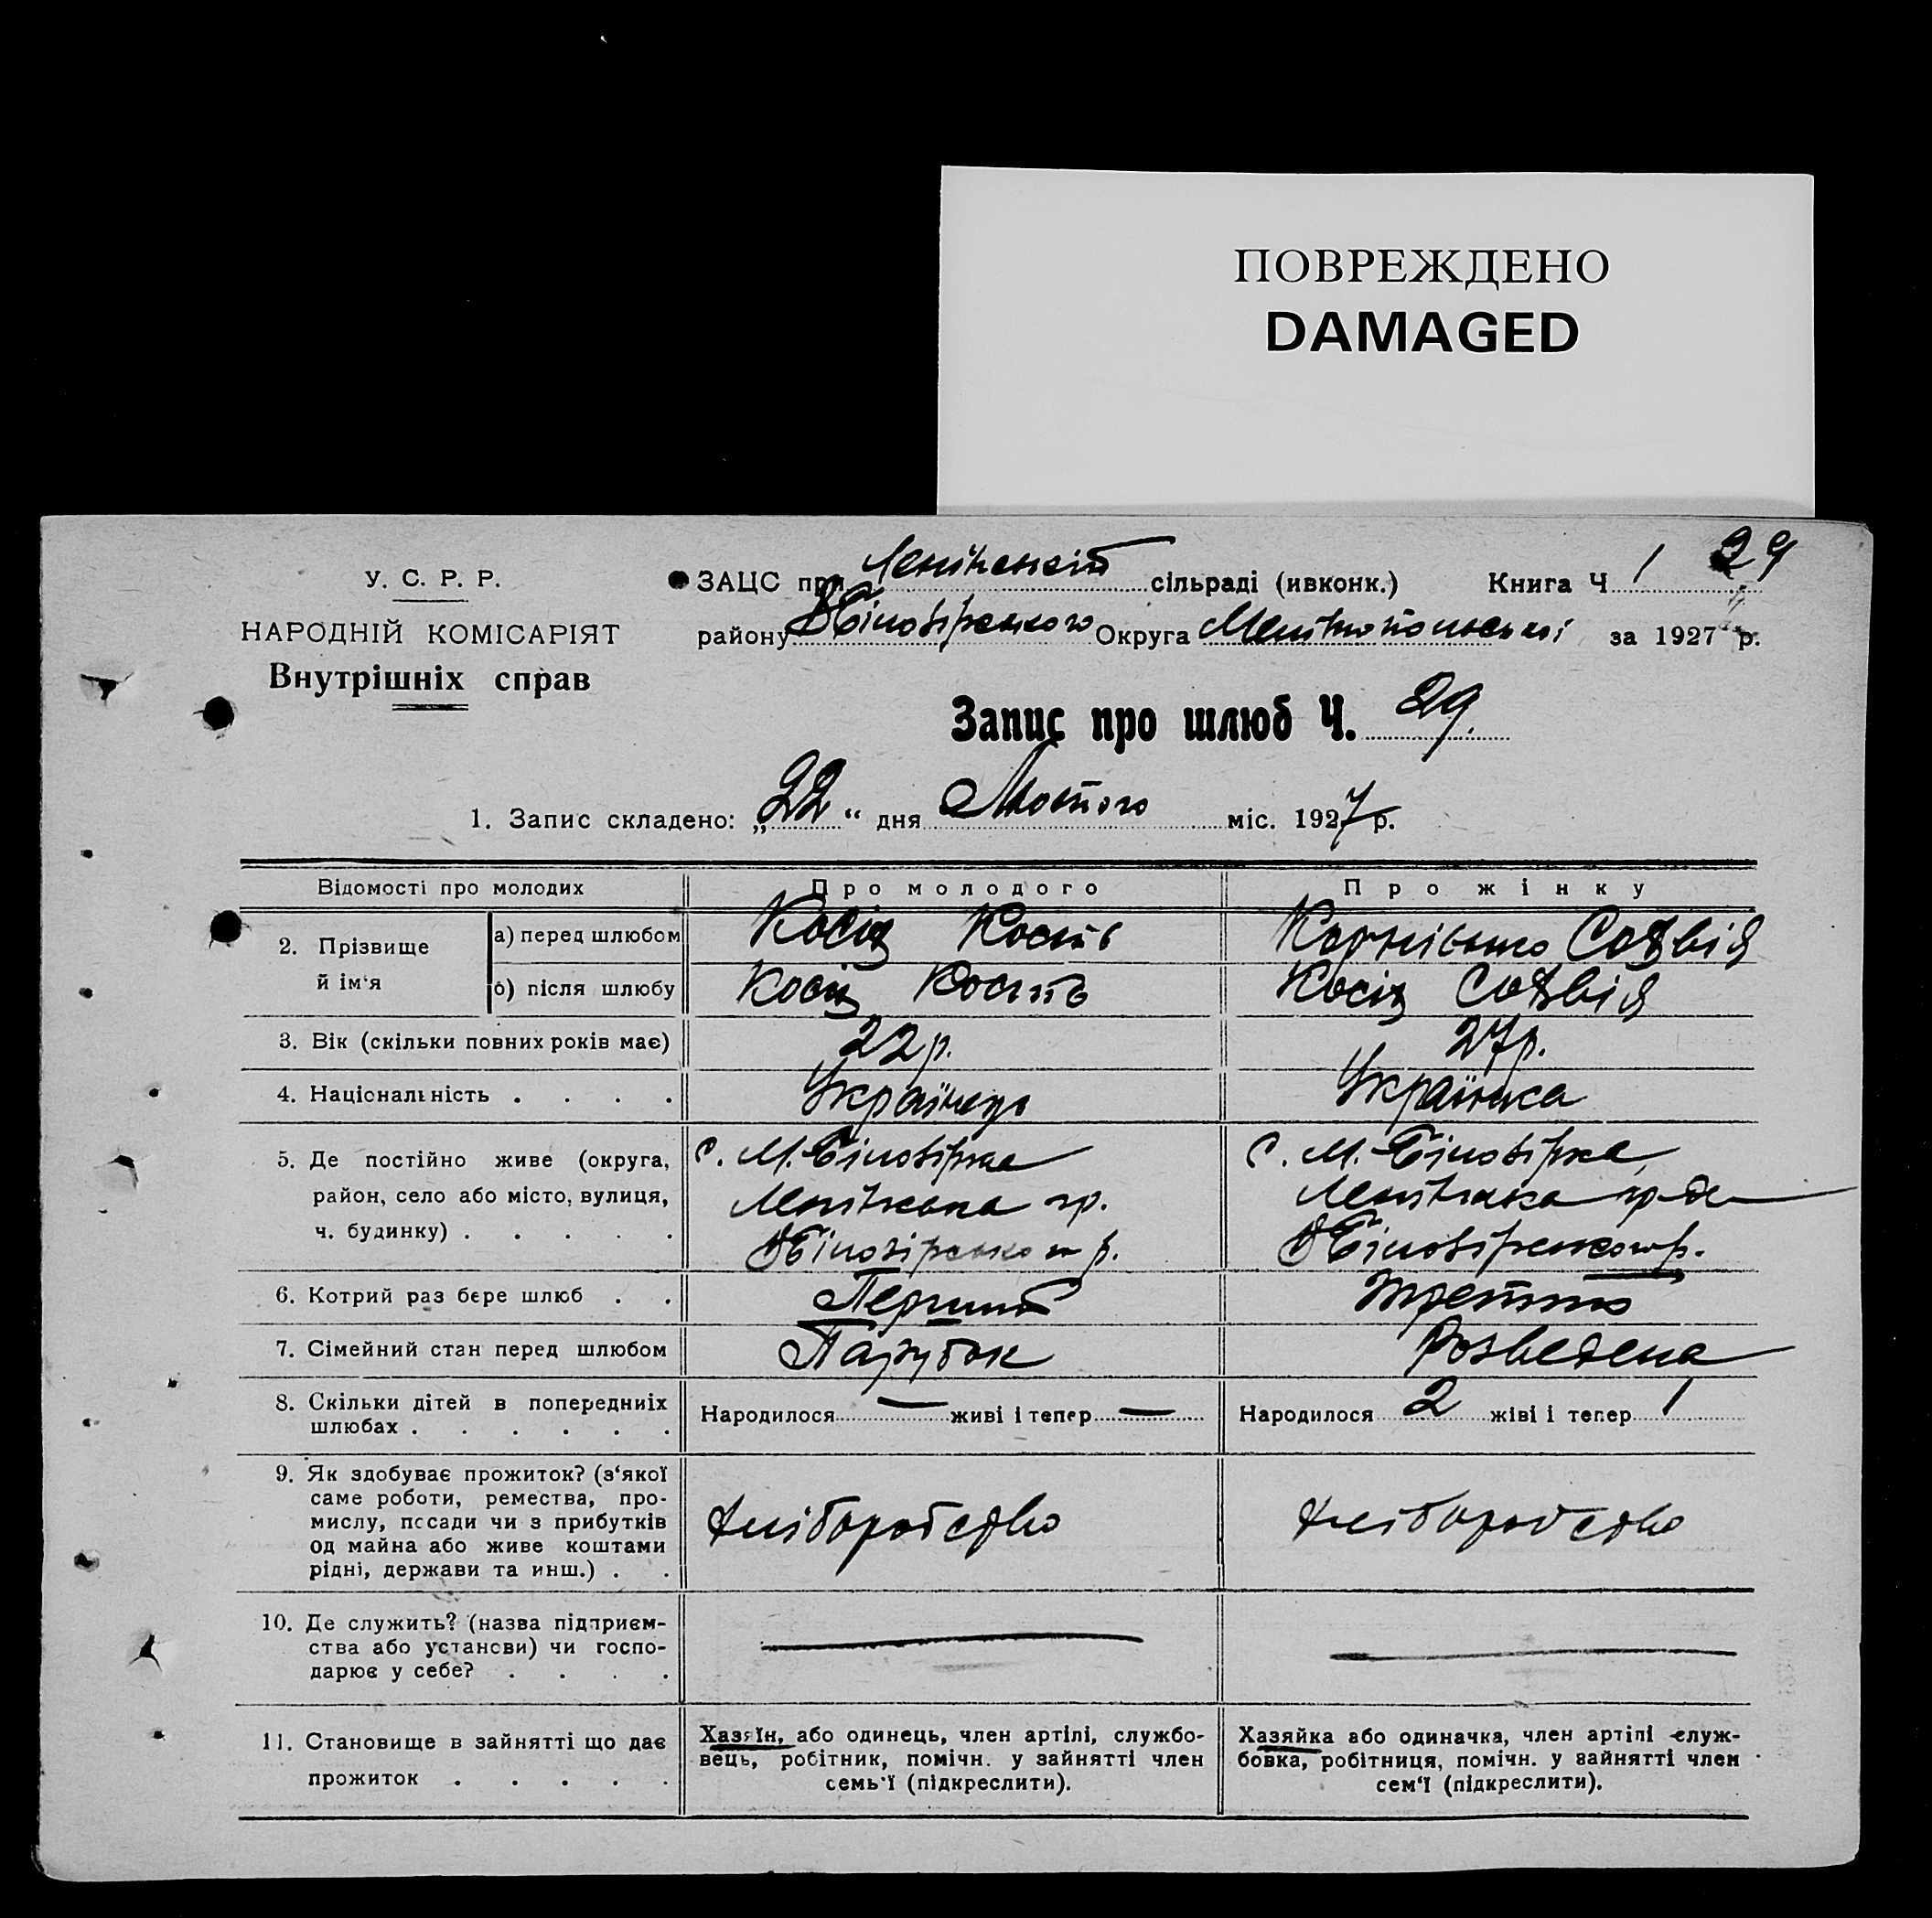 ПОВРЕЖДЕНО
DAMAGED
У. С. Р. Р.
НАРОДНІЙ КОМІСАРІЯТ
Внутрішніх справ
ЗАЦС при Ленінській сільраді (ивконк.) Книга Ч 1 29
району В Білозірського Округа Мелітопольської за 1927 р.
Запис про шлюб Ч. 29.
1. Запис складено: „22“ дня Лютого міс. 1927 р.
Відомості про молодих Про молодого Про жінку
2. Прізвище й ім‘я
а) перед шлюбом Косіц Кость Софвія
б) після шлюбу Косіц Кость Косіц Софвія
3. Вік (скільки повних років має) 22 р. 27 р.
4. Національність . . . . Українець Українка
5. Де постійно живе (округа, с. М. Білозірка с. М. Білозірка
район, село або місто, вулиця, Ленінська гр.
ч. будинку) . . . . . В Білозірського р. В Білозірського р.
6. Котрий раз бере шлюб . . Перший Третій
7. Сімейний стан перед шлюбом Парубок Розведена
8. Скільки дітей в попередниіх Народилося — живі і тепер — Народилося 2 жіві і тепер 1
шлюбах . . . . . .
9. Як здобуває прожиток? (з‘якої
саме роботи, ремества, про-
мислу, посади чи з прибутків Хліборобство Хліборобство
од майна або живе коштами
рідні, держави та инш.) . .
10. Де служить? (назва підприєм- — —
ства або установи) чи госпо-
дарює у себе? . . . .
11. Становище в зайнятті що дає
прожиток . . . . .
Хазяїн, або одинець, член артілі, службо-
вець, робітник, помічн. у зайнятті член
семь‘ї (підкреслити).
Хазяйка або одиначка, член артілі служ-
бовка, робітниця, помічн. у зайнятті член
сем‘ї (підкреслити).